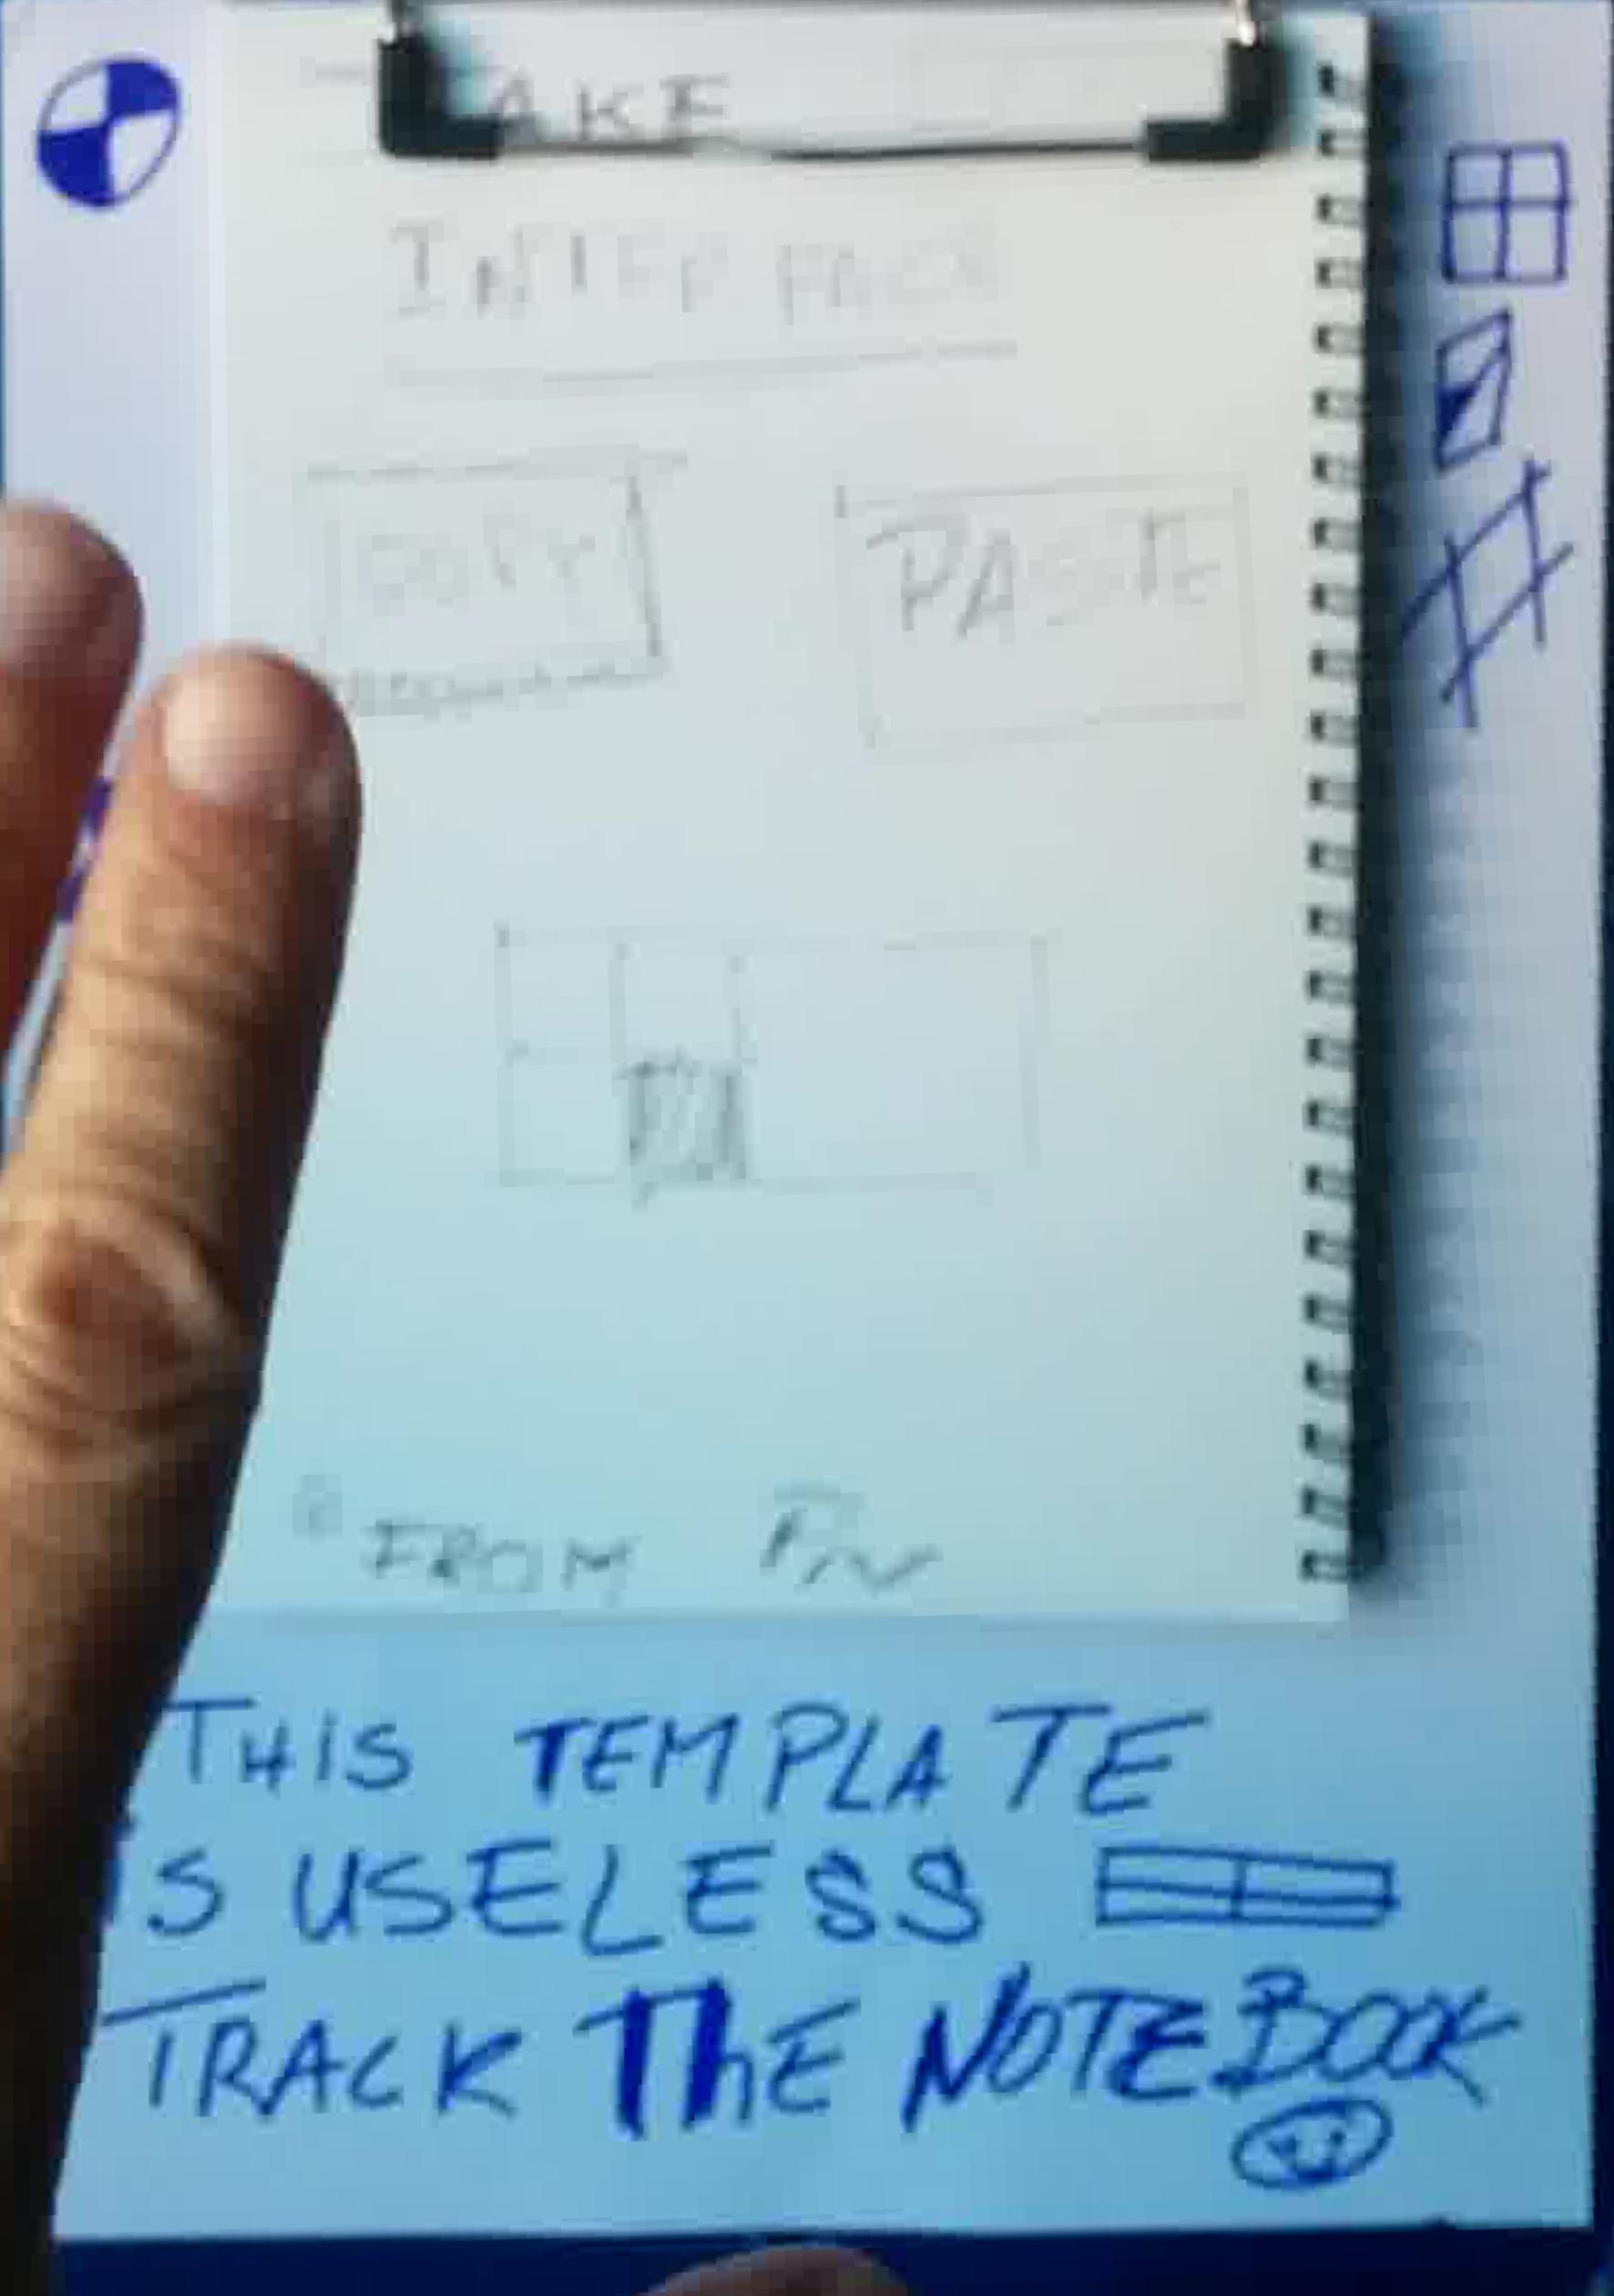 AKE
INTERFACE
COPY PASTE
FROM
THIS TEMPLATE
IS USELESS
TRACK THE NOTEBOOK